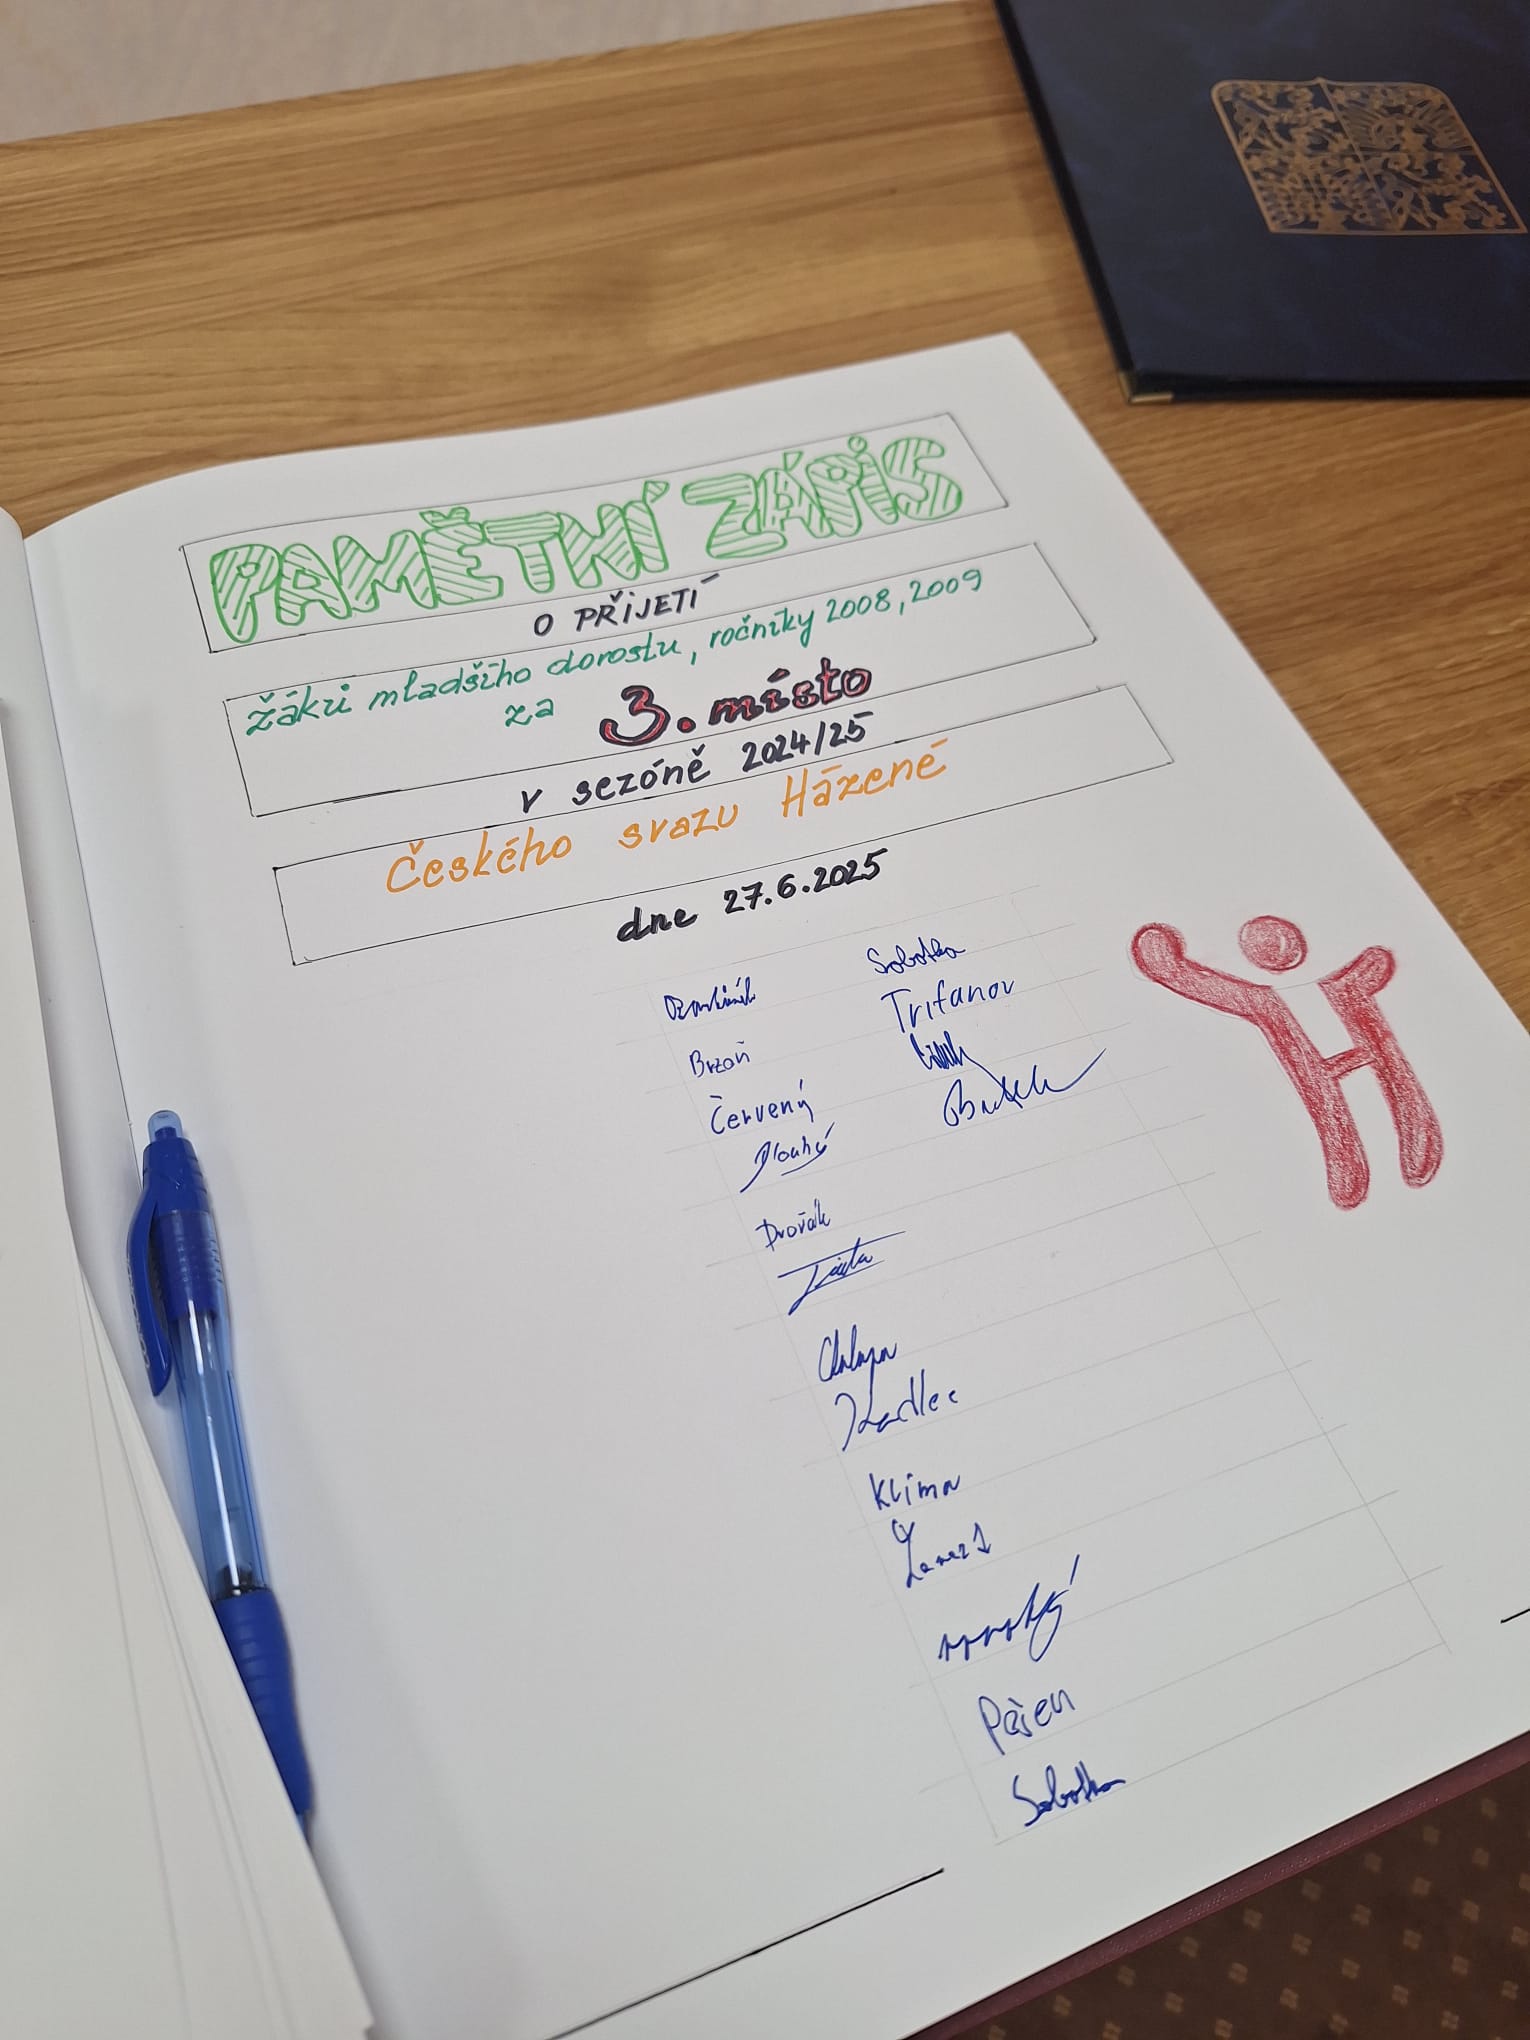 PAMĚTNÍ ZÁPIS
O PŘIJETÍ
žáků mladšího dorostu, ročníky 2008, 2009
za 3. místo
v sezóně 2024/25
Českého svazu Házené
dne 27.6.2025
Brzoň
Červený
Dlouhý
Dvořák
Chalupa
Kadlec
Klíma
Pašen
Sobotka
Sobotka
Trifanov